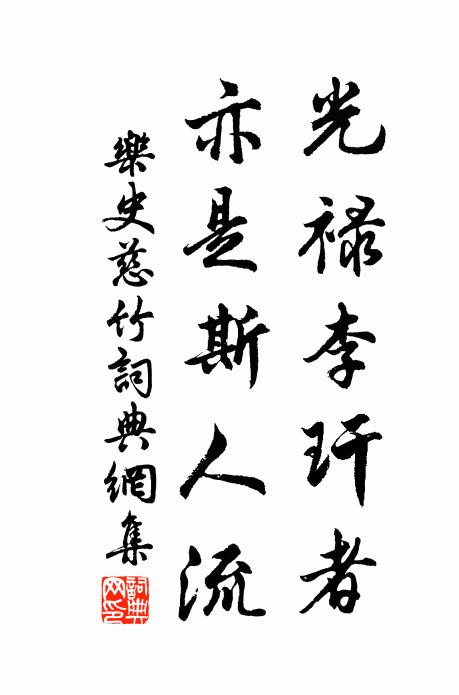 光禄李玕者
亦是斯人流
樂史慈竹詞典網集
詞典網印